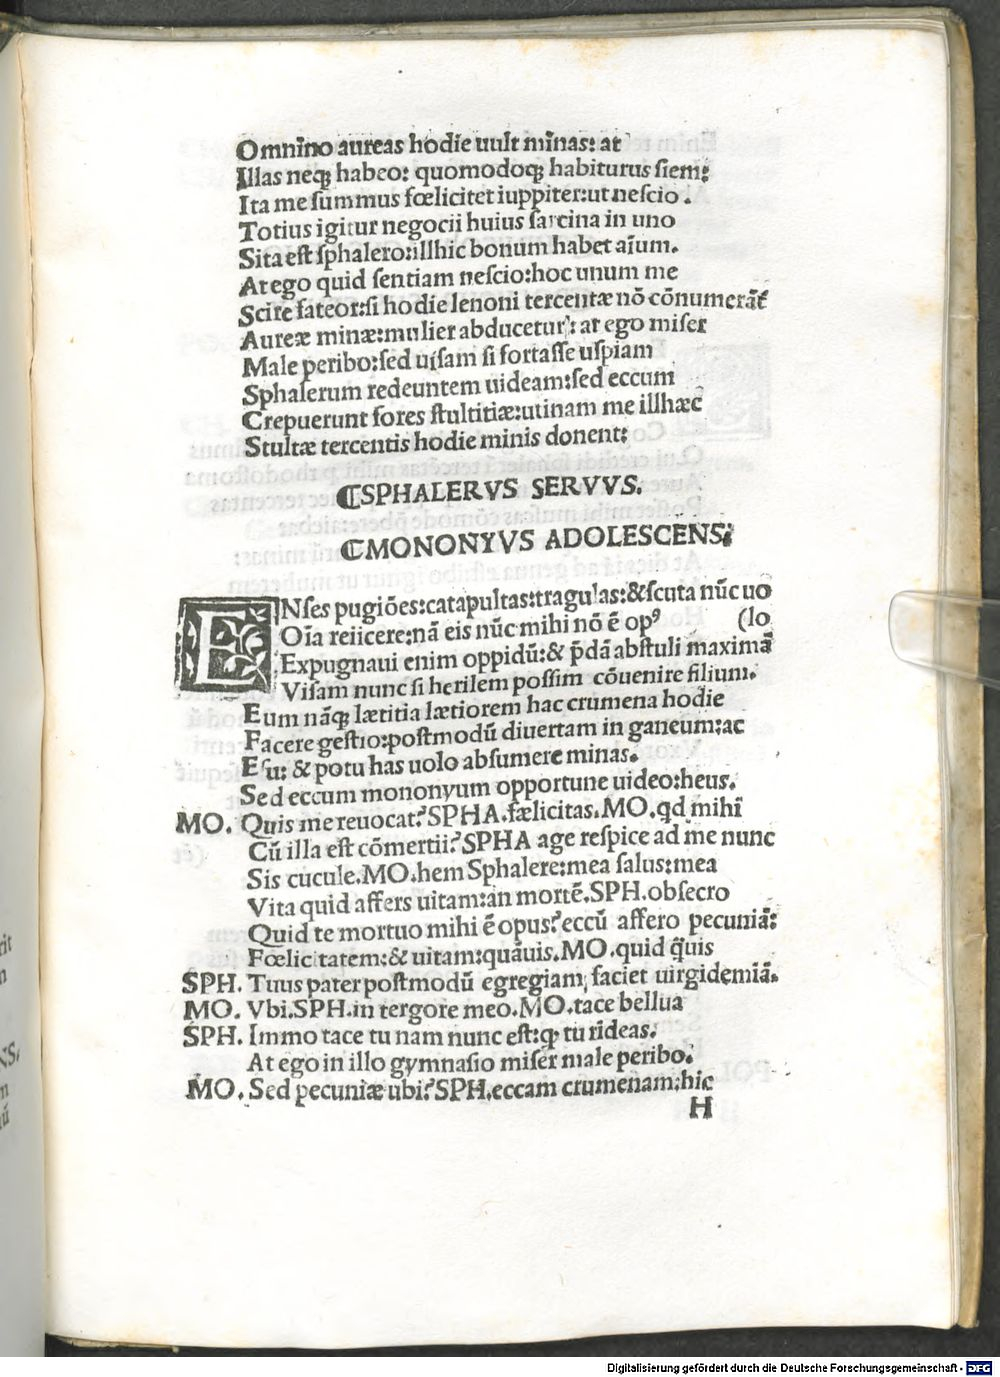 Omnĩno aureas hodie uult mĩnas: at
Illas neqꝫ habeo: quomodoqꝫ habiturus ſiem:
Ita me ſummus fœlicitet iuppiter: ut neſcio.
Totius igitur negocii huius ſarcina in uno
Sita eſt ſphalero: illhic bonum habet aĩum.
At ego quid ſentiam neſcio: hoc unum me
Scire fateor: ſi hodie lenoni tercentæ nõ cõnumerãt
Aureæ minæ: mulier abducetur: at ego miſer
Male peribo: ſed uiſam ſi fortaſſe uſpiam
Sphalerum redeuntem uideam: ſed eccum
Crepuerunt fores ſtultitiæ: utinam me illhæc
Stultæ tercentis hodie minis donent:
⸿SPHALERVS SERVVS.
⸿MONONYVS ADOLESCENS:
ENſes pugiões: catapultas: tragulas: & ſcuta nũc uo
Oĩa reiicere: nã eis nũc mihi nõ ẽ opꝰ (lo
Expugnaui enim oppidũ: & p̃dã abſtuli maximã
Viſam nunc ſi herilem poſſim cõuenire filium.
Eum nãqꝫ lætitia lætiorem hac crumena hodie
Facere geſtio: poſtmodũ diuertam in ganeum: ac
Eſu: & potu has uolo abſumere minas.
Sed eccum mononyum opportune uideo: heus.
MO. Quis me reuocat? SPHA. fælicitas. MO. qd mihi
Cũ illa eſt cõmertii? SPHA age reſpice ad me nunc
Sis cucule. MO. hem Sphalere: mea ſalus: mea
Vita quid affers uitam: an mortẽ. SPH. obſecro
Quid te mortuo mihi ẽ opus? eccũ affero pecuniã:
Fœlicitatem: & uitam: quãuis. MO. quid q̃uis
SPH. Tuus pater poſtmodũ egregiam faciet uirgidemiã.
MO. Vbi. SPH. in tergore meo. MO. tace bellua
SPH. Immo tace tu nam nunc eſt: qꝫ tu rideas.
At ego in illo gymnaſio miſer male peribo.
MO. Sed pecuniæ ubi? SPH. eccam crumenam: hic
H
Digitalisierung gefördert durch die Deutsche Forschungsgemeinschaft - DFG